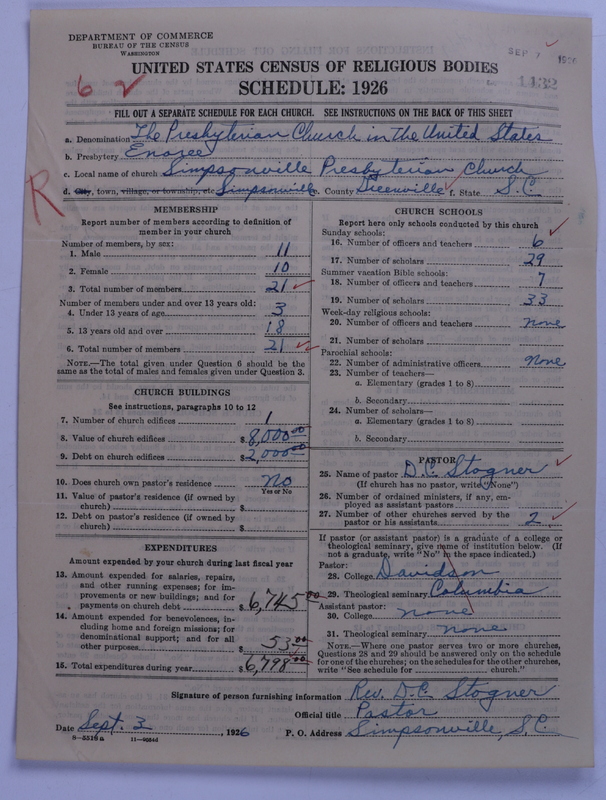 DEPARTMENT OF COMMERCE
BUREAU OF THE CENSUS
WASHINGTON
SEP 7 1926
1432
6
UNITED STATES CENSUS OF RELIGIOUS BODIES
SCHEDULE: 1926
FILL OUT A SEPARATE SCHEDULE FOR EACH CHURCH. SEE INSTRUCTIONS ON THE BACK OF THIS SHEET
a. Denomination The Presbyterian Church in the United States
b. Presbytery Enoree
c. Local name of church Simpsonville Presbyterian Church
R
d. City, town, village, or township, etc Simpsonville e. County Greenville f. State S.C.
MEMBERSHIP
Report number of members according to definition of member in your church
Number of members, by sex:
1. Male 11
2. Female 10
3. Total number of members 21
Number of members under and over 13 years old:
4. Under 13 years of age 3
5. 13 years old and over 18
6. Total number of members 21
NOTE.—The total given under Question 6 should be the same as the total of males and females given under Question 3.
CHURCH BUILDINGS
See instructions, paragraphs 10 to 12
7. Number of church edifices 1
8. Value of church edifices $ 8,000.00
9. Debt on church edifices $ 2,000.00
10. Does church own pastor's residence No
Yes or No
11. Value of pastor's residence (if owned by church) $
12. Debt on pastor's residence (if owned by church) $
EXPENDITURES
Amount expended by your church during last fiscal year
13. Amount expended for salaries, repairs, and other running expenses; for improvements or new buildings; and for payments on church debt $ 6,745.00
14. Amount expended for benevolences, including home and foreign missions; for denominational support; and for all other purposes $ 53.00
15. Total expenditures during year $ 6,798.00
CHURCH SCHOOLS
Report here only schools conducted by this church
Sunday schools:
16. Number of officers and teachers 6
17. Number of scholars 29
Summer vacation Bible schools:
18. Number of officers and teachers 7
19. Number of scholars 33
Week-day religious schools:
20. Number of officers and teachers none
21. Number of scholars
Parochial schools:
22. Number of administrative officers none
23. Number of teachers—
a. Elementary (grades 1 to 8)
b. Secondary
24. Number of scholars—
a. Elementary (grades 1 to 8)
b. Secondary
PASTOR
25. Name of pastor D.C. Stogner
(If church has no pastor, write "None")
26. Number of ordained ministers, if any, employed as assistant pastors
27. Number of other churches served by the pastor or his assistants 2
If pastor (or assistant pastor) is a graduate of a college or theological seminary, give name of institution below. (If not a graduate, write "No" in the space indicated.)
Pastor:
28. College Davidson
29. Theological seminary Columbia
Assistant pastor:
30. College none
31. Theological seminary none
NOTE.—Where one pastor serves two or more churches, Questions 28 and 29 should be answered only on the schedule for one of the churches; on the schedules for the other churches, write "See schedule for church."
Signature of person furnishing information Rev. D.C. Stogner
Official title Pastor
Date Sept. 3, 1926
P. O. Address Simpsonville, S.C.